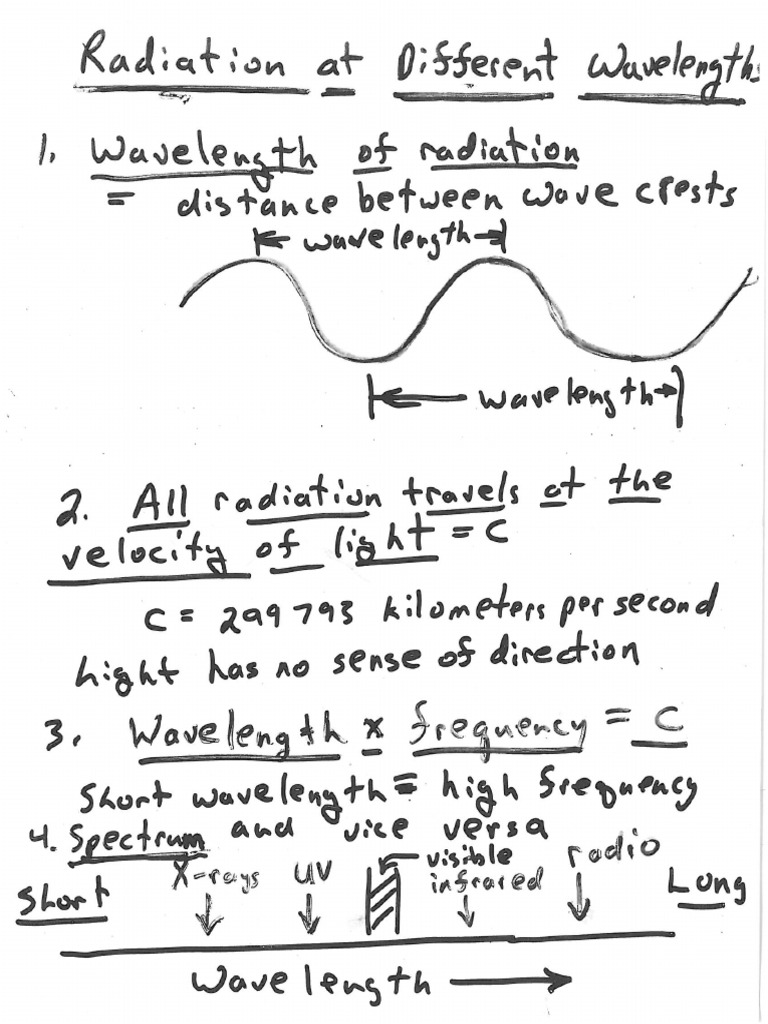 Radiation at Different Wavelengths
1. Wavelength of radiation
= distance between wave crests
wavelength
wavelength
2. All radiation travels at the
velocity of light = C
C = 299793 kilometers per second
Light has no sense of direction
3. Wavelength x frequency = C
Short wavelength = high frequency
and vice versa
4. Spectrum
X-rays UV visible infrared radio
Short Long
Wavelength